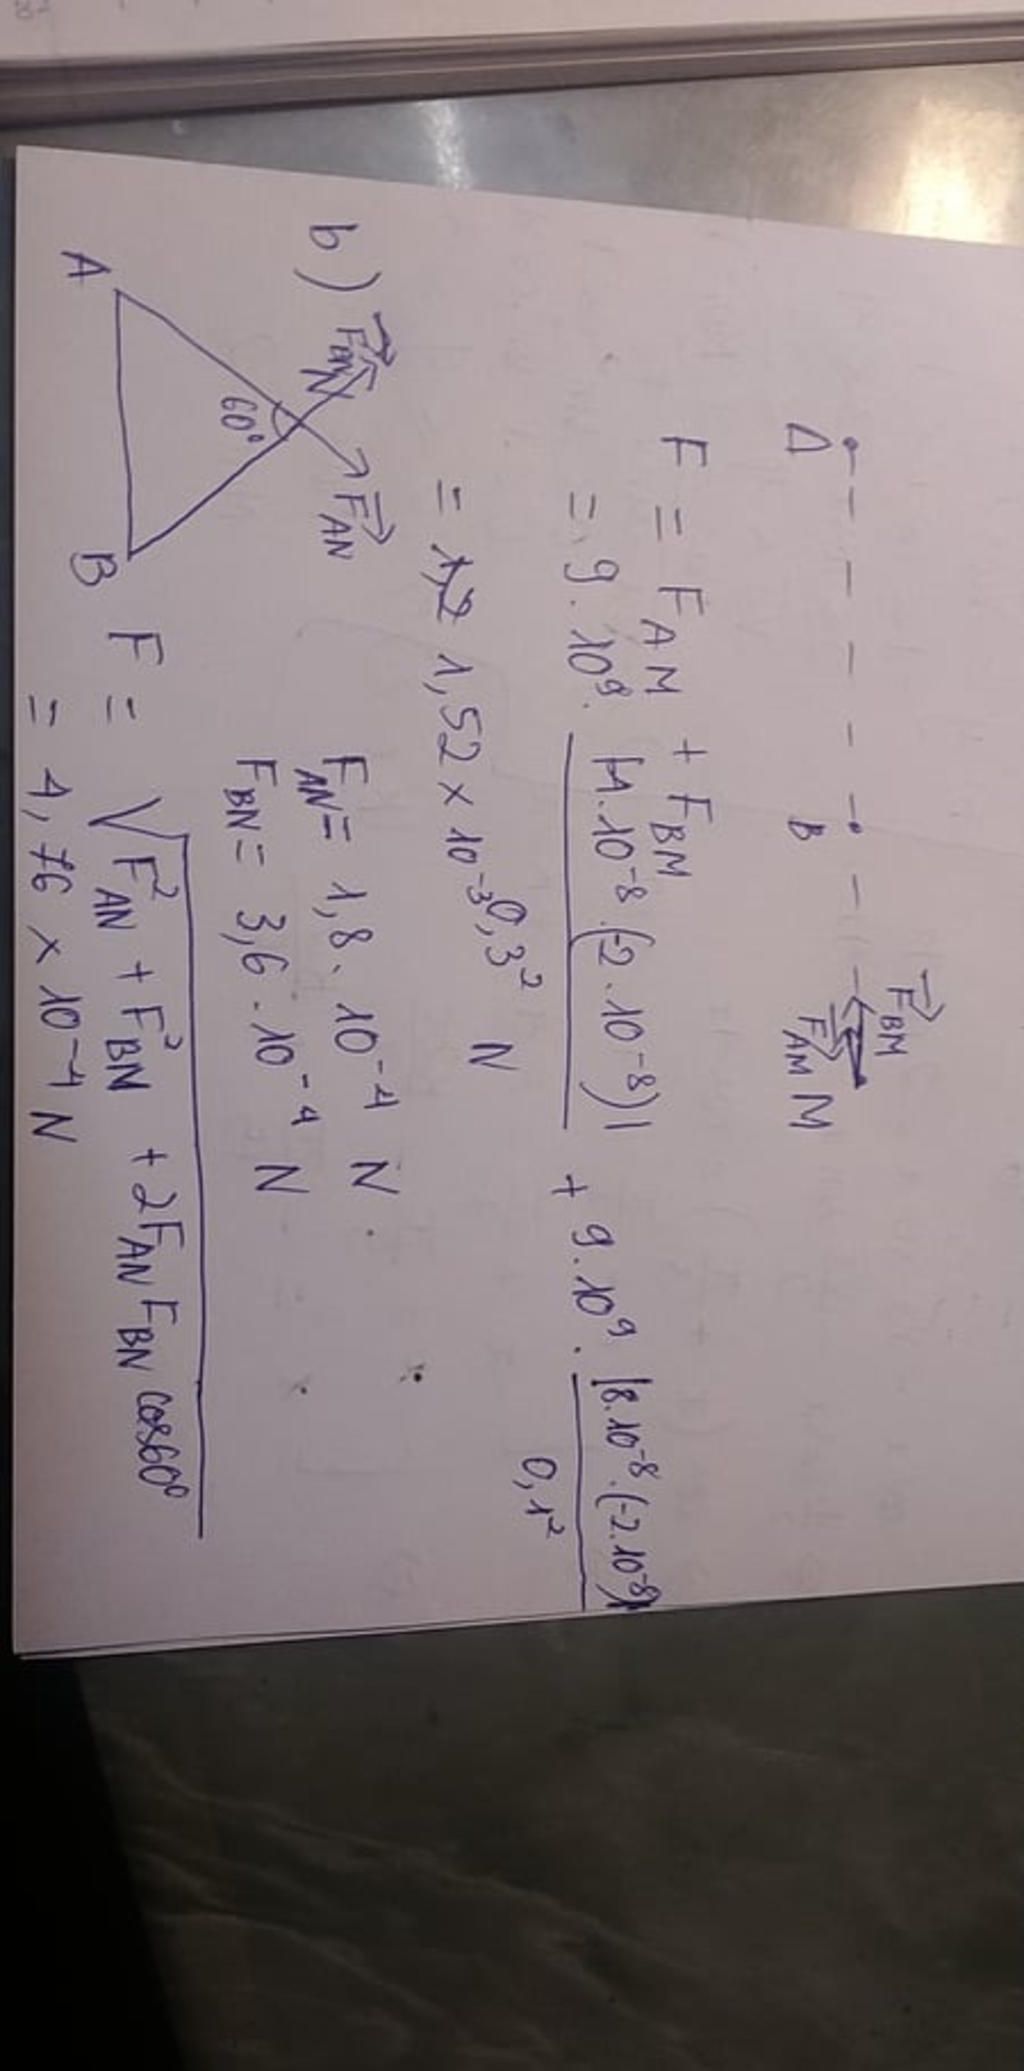 A B M
F⃗BM
F⃗AM
F = FAM + FBM
= 9.10⁹. |4.10⁻⁸.(-2.10⁻⁸)| / 0,3² + 9.10⁹. |8.10⁻⁸.(-2.10⁻⁸)| / 0,1²
= 1,52 × 10⁻³ N
b)
F⃗BN F⃗AN
N
60°
A B
FAN = 1,8. 10⁻⁴ N
FBN = 3,6. 10⁻⁴ N
F = √(F²AN + F²BN + 2FAN FBN cos60°)
= 4,76 × 10⁻⁴ N